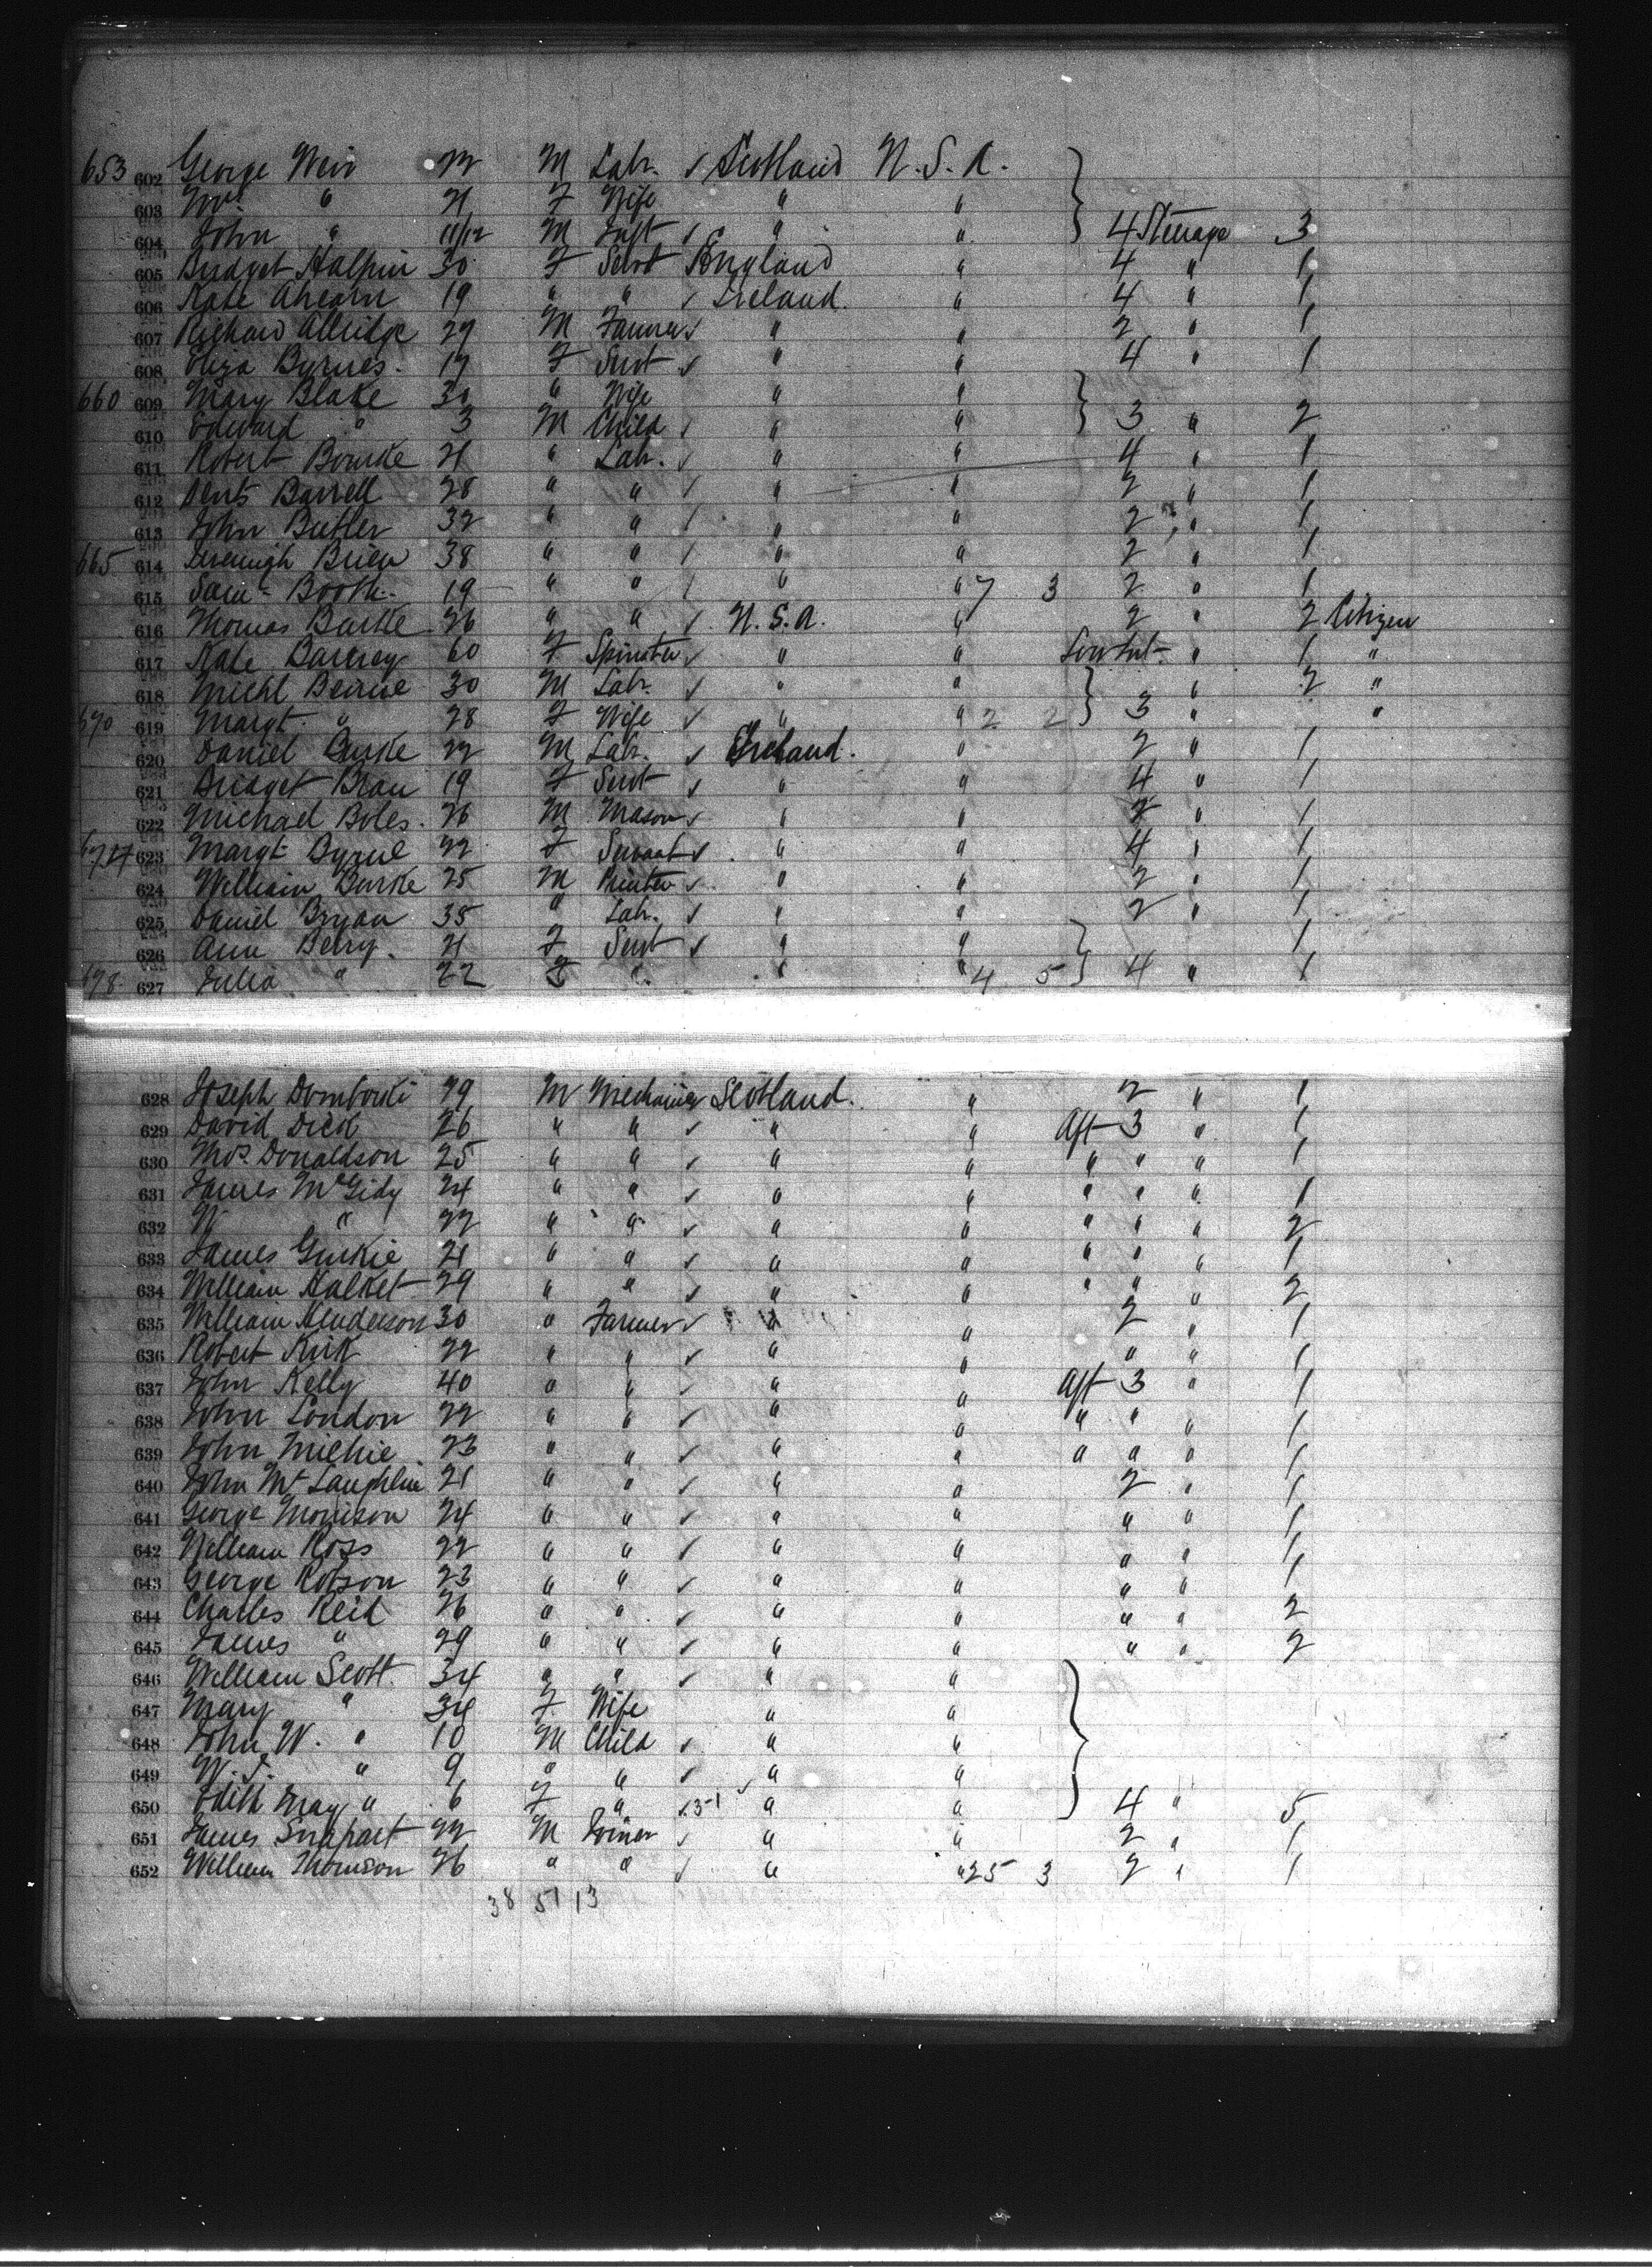 653 602 George Weir M Labr. ✓ Scotland U.S.A.
603 " 21 F Wife " "
604 John " 11/12 M Inft ✓ " " 4 Steerage 3
605 Bridget Halpin 30 F Servt England " 4 " 1
606 Kate Ahearn 19 " " ✓ Ireland. " 4 " 1
607 Richard Allridge 29 M Farmer ✓ " " 2 " 1
608 Eliza Byrnes. 17 F Servt ✓ " " 4 " 1
660 609 Mary Blake 30 " Wife " "
610 Edward " 3 M Child ✓ " " 3 " 2
611 Robert Bourke 21 " Labr. ✓ " " 4 " 1
612 Barrell 28 " " ✓ " " 2 " 1
613 John Butler 32 " " ✓ " " 2 " 1
665 614 Jeremiah Brien 38 " " ✓ " " 2 " 1
615 Saml. Booth 19 " " ✓ " " 7 3 2 " 1
616 Thomas Burke 26 " " ✓ U.S.A. " 2 " 2 Citizen
617 Kate 60 F Spinster ✓ " " " 1 "
618 Michl Beirne 30 M Labr. ✓ " " " 2 "
670 619 Margt. " 28 F Wife ✓ " " 2 2 3 " "
620 Daniel Burke 22 M Labr. ✓ Ireland. " 2 " 1
621 Bridget 19 F Servt ✓ " " 4 " 1
622 Michael Boles. 26 M Mason ✓ " " 2 " 1
623 Margt Byrne 22 F Servant ✓ " " 4 " 1
624 William Burke 25 M Printer ✓ " " 2 " 1
625 Daniel Bryan 35 " Labr. ✓ " " 2 " 1
626 Ann Berry. 21 F Servt ✓ " " 1
678 627 Julia " 22 F " " " 4 5 4 " 1
628 Joseph Dombroski 29 M Mechanic Scotland. " 2 " 1
629 David Dick 26 " " ✓ " " Aft 3 " 1
630 Thos. Donaldson 25 " " ✓ " " " " " 1
631 James McGidy 24 " " ✓ " " " " " 1
632 W " 22 " " ✓ " " " " " 2
633 James Guthrie 21 " " ✓ " " " " " 1
634 William Halket 29 " " ✓ " " " " " 2
635 William Henderson 30 " Farmer ✓ " " 2 " 1
636 Robert Kirk 22 " " ✓ " " " " 1
637 John Kelly 40 " " ✓ " " Aft 3 " 1
638 John London 22 " " ✓ " " " " " 1
639 John Michie 23 " " ✓ " " " " " 1
640 John McLaughlin 21 " " ✓ " " 2 " 1
641 George Morrison 24 " " ✓ " " " " 1
642 William Ross 22 " " ✓ " " " " 1
643 George Robson 23 " " ✓ " " " " 1
644 Charles Reid 26 " " ✓ " " " " 2
645 James " 29 " " ✓ " " " " 2
646 William Scott. 34 " " ✓ " "
647 Mary " 34 F Wife " "
648 John W. " 10 M Child ✓ " "
649 W. J. " 9 " " ✓ " "
650 Edith May " 6 F " ✓ 51 ✓ " " 4 " 5
651 James 22 M Joiner ✓ " " 2 " 1
652 William Thomson 26 " " ✓ " " 25 3 2 " 1
38 51 13